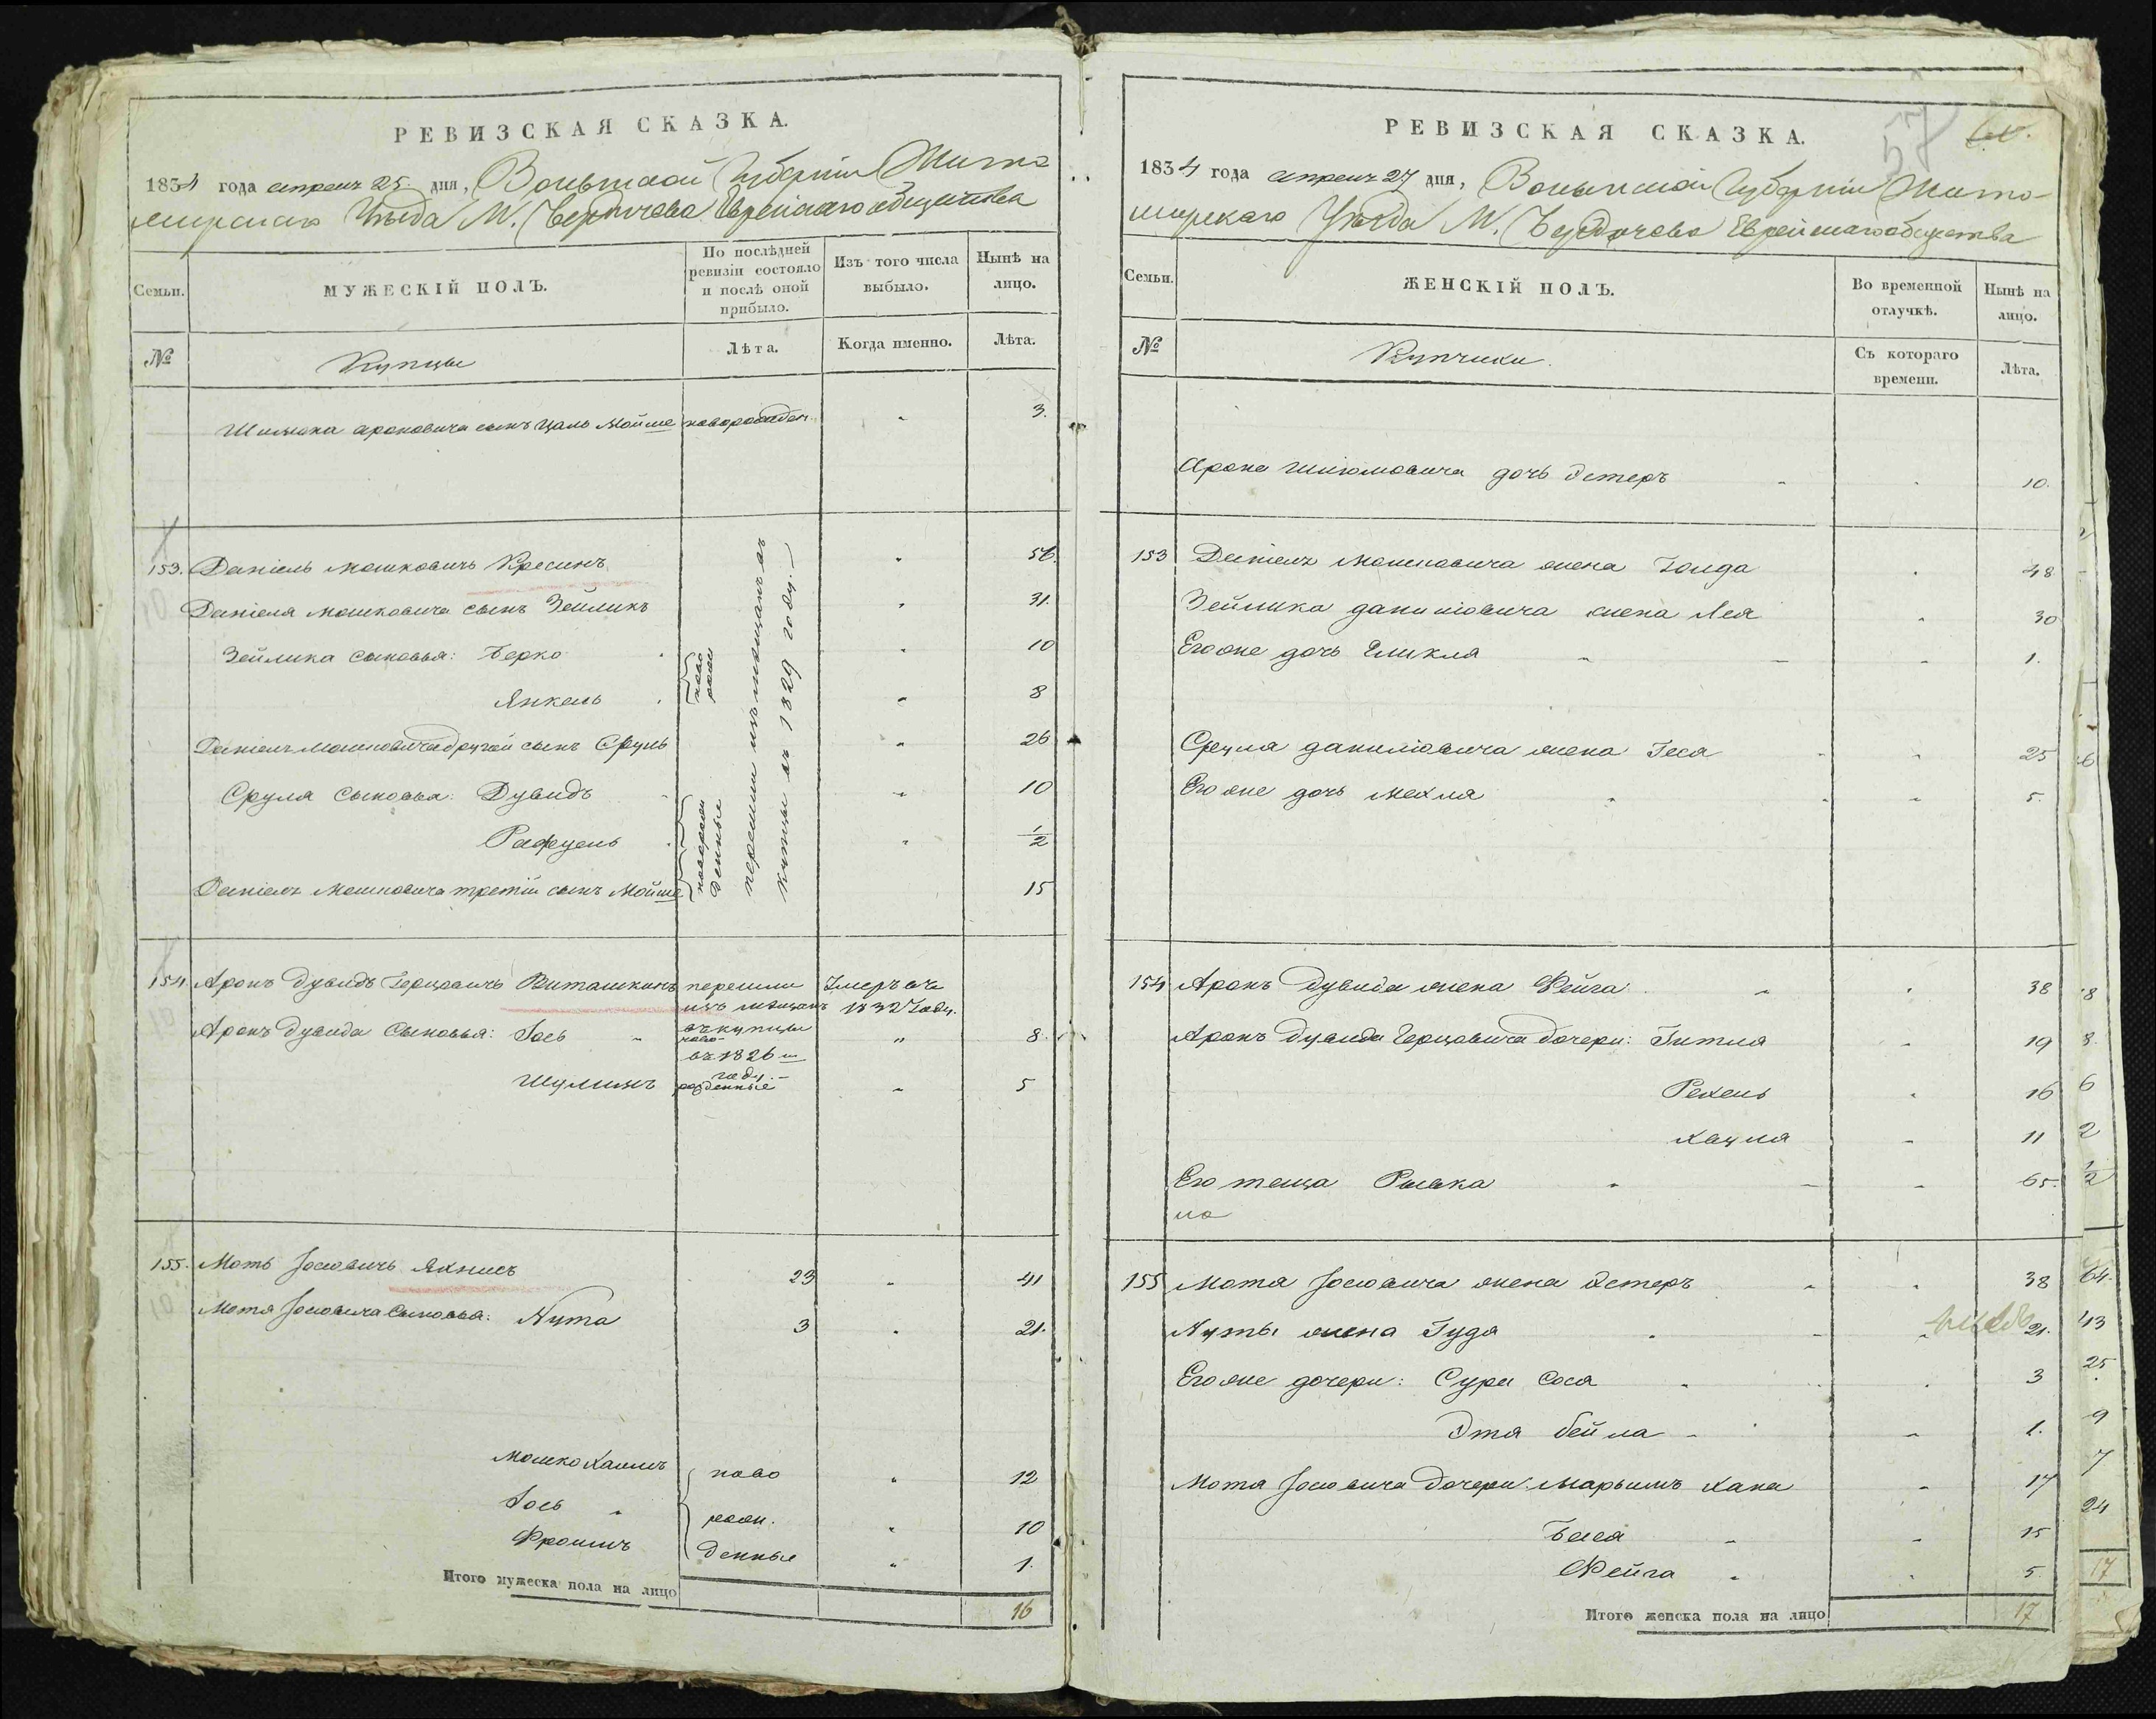 РЕВИЗСКАЯ СКАЗКА.
1834 года апреля 25 дня, Волынской Губернiи Жито
мирскаго Уѣзда М. Бердичева Еврейскаго общества
Семьи.
МУЖЕСКIЙ ПОЛЪ.
По послѣдней ревизiи состояло и послѣ оной прибыло.
Изъ того числа выбыло.
Нынѣ на лицо.
№
Купцы
Лѣта.
Когда именно.
Лѣта.
Шилика ароновича сынъ Цаль Мойше новорожден. " 3.
153. Данiель мошковичъ Кресинъ " 56.
Данiеля мошковича сынъ Зейликъ " 31.
Зейлика сыновья: Берко " 10
Янкель " 8
ново
рожд
Данiеля Мошковича другой сынъ Сруль " 26
Сруля сыновья: Дувидъ " 10
Рафуель " 1/2
Данiеля Мошковича третiй сынъ Мойше 15
новорож
денные
перешли изъ мѣщанъ въ
купцы въ 1829 году.
154 Аронъ Дувидъ Герцовичъ Виташкинъ перешли Умеръ въ
изъ мѣщанъ 1832 Году.
Аронъ Дувида Сыновья: Iось " въ купцы " 8.
ново
въ 1826 м
году.
Шулимъ рожденные " 5
155. Моть Iосiовичъ Яхнисъ 23 " 41
Мотя Iосiовича Сыновья: Нута 3 " 21.
Мошко Хаимъ ново " 12
Iось " рож. " 10
Фроимъ денные " 1.
Итого мужеска пола на лицо
16
РЕВИЗСКАЯ СКАЗКА.
57
1834 года апреля 27 дня, Волынской Губернiи Жито-
мирскаго Уѣзда М. Бердичева Еврейскаго общества
Семьи.
ЖЕНСКIЙ ПОЛЪ.
Во временной отлучкѣ.
Нынѣ на лицо.
№
Купчихи.
Съ котораго времени.
Лѣта.
Арона Шлiомовича дочь Эстеръ " " 10.
153 Данiеля Мошковича жена Голда " 48
Зейлика данилiовича жена Лея " 30
Его же дочь Еликля " " 1.
Сруля данилiовича жена Геся " " 25
Его же дочь Мехля " " 5.
154 Аронъ Дувида жена Фейга " " 38
Аронъ Дувида Герцовича дочери: Гитля " 19
Рехель " 16
Хацля " 11
Его теща Ривка " " 65.
ла
155 Мотя Iосiовича жена Эстеръ " " 38
Нуты жена Гудя " " 21.
Его же дочери: Сура Сося " " 3
Этя бейла " " 1.
Мотя Iосiовича Дочери: Марьимъ Хана " 17
Бася " " 15
Фейга " " 5.
Итого женска пола на лицо
17
6
8
8.
6
2
1/2
64.
43
25
9
7
24
17